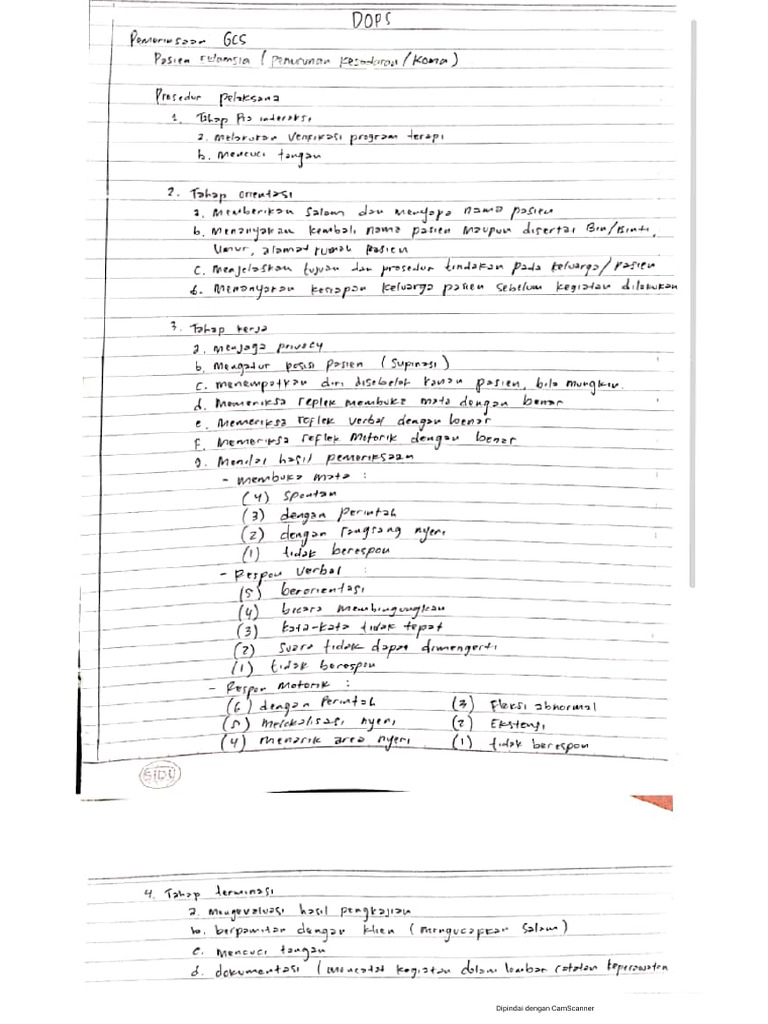 DOPS
Pemeriksaan GCS
Pasien eklamsia (Penurunan kesadaran/koma)
Prosedur pelaksana
1. Tahap Pra interaksi
a. Melakukan Verifikasi program terapi
b. Mencuci tangan
2. Tahap orientasi
a. Memberikan salam dan menyapa nama pasien
b. Menanyakan kembali nama pasien maupun disertai Bin/Binti,
Umur, alamat rumah pasien
c. Menjelaskan tujuan dan prosedur tindakan pada keluarga/pasien
d. Menanyakan kesiapan keluarga pasien sebelum kegiatan dilakukan
3. Tahap kerja
a. Menjaga privacy
b. Mengatur posisi pasien (supinasi)
c. menempatkan diri disebelah kanan pasien, bila mungkin.
d. Memeriksa replek membuka mata dengan benar
e. Memeriksa reflek verbal dengan benar
f. Memeriksa reflek Motorik dengan benar
g. Menilai hasil pemeriksaan
- membuka mata :
(4) Spontan
(3) dengan perintah
(2) dengan rangsang nyeri
(1) tidak berespon
- Respon Verbal :
(5) berorientasi
(4) bicara membingungkan
(3) kata-kata tidak tepat
(2) Suara tidak dapat dimengerti
(1) tidak berespon
- Respon Motorik :
(6) dengan Perintah (3) Fleksi abnormal
(5) Melokalisasi nyeri (2) Ekstensi
(4) menarik area nyeri (1) tidak berespon
SIDU
4. Tahap terminasi
a. Mengevaluasi hasil pengkajian
b. berpamitan dengan klien (mengucapkan salam)
c. Mencuci tangan
d. dokumentasi (mencatat kegiatan dalam lembar catatan keperawatan
Dipindai dengan CamScanner